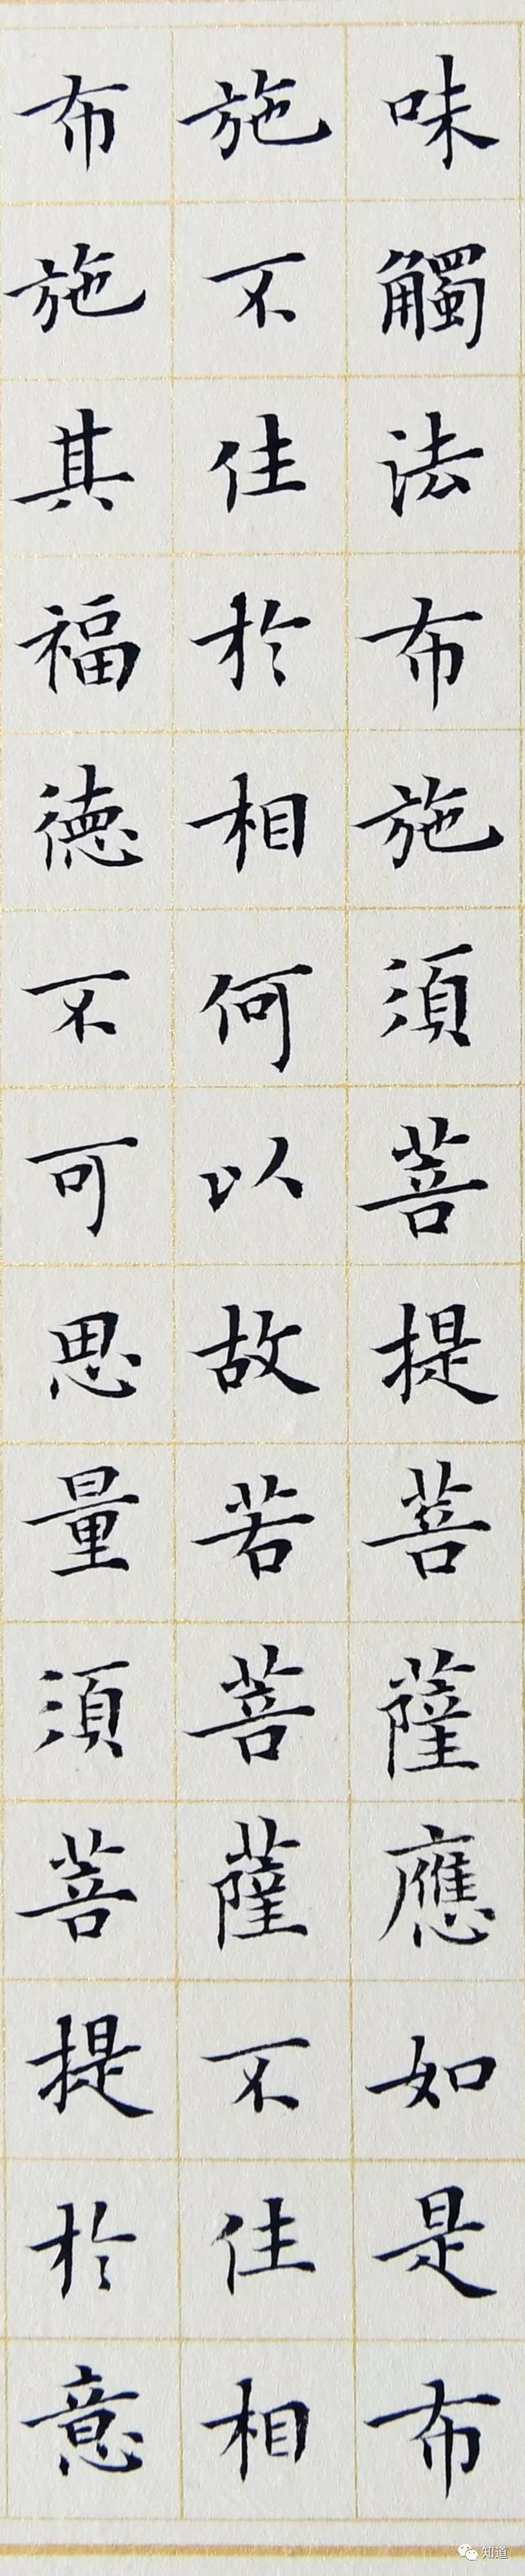 味觸法布施須菩提菩薩應如是布
施不住於相何以故若菩薩不住相
布施其福德不可思量須菩提於意
知道